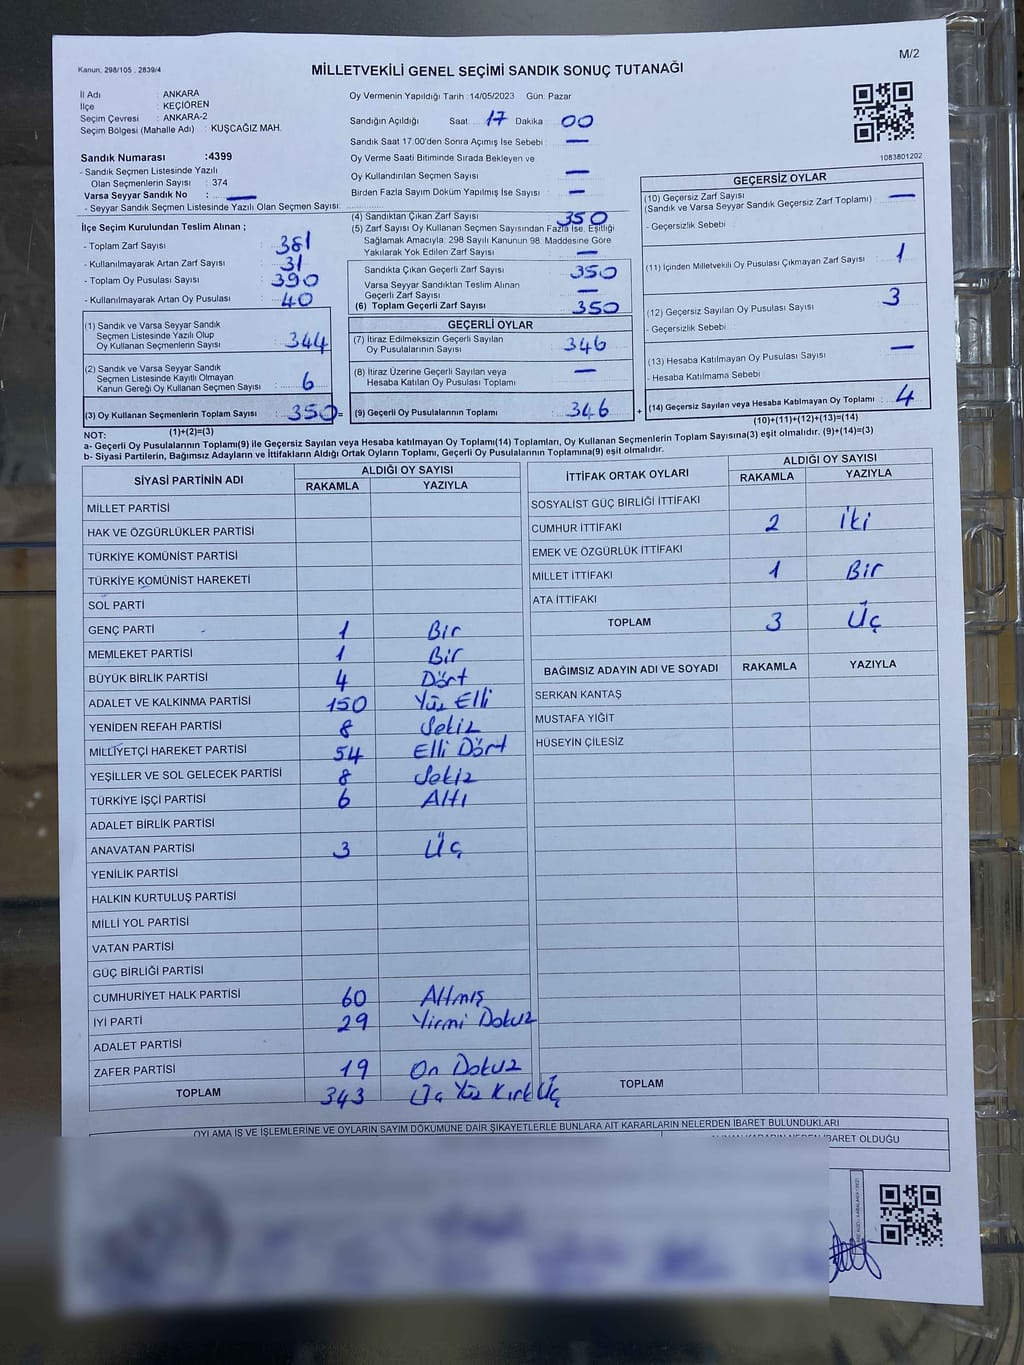 M/2
Kanun, 298/105 , 2839/4
MİLLETVEKİLİ GENEL SEÇİMİ SANDIK SONUÇ TUTANAĞI
İl Adı : ANKARA
İlçe : KEÇİÖREN
Seçim Çevresi : ANKARA-2
Seçim Bölgesi (Mahalle Adı) : KUŞCAĞIZ MAH.
Sandık Numarası :4399
- Sandık Seçmen Listesinde Yazılı
Olan Seçmenlerin Sayısı : 374
Varsa Seyyar Sandık No : —
- Seyyar Sandık Seçmen Listesinde Yazılı Olan Seçmen Sayısı:
İlçe Seçim Kurulundan Teslim Alınan ;
- Toplam Zarf Sayısı : 381
- Kullanılmayarak Artan Zarf Sayısı : 31
- Toplam Oy Pusulası Sayısı : 390
- Kullanılmayarak Artan Oy Pusulası : 40
(1) Sandık ve Varsa Seyyar Sandık
Seçmen Listesinde Yazılı Olup
Oy Kullanan Seçmenlerin Sayısı : 344
(2) Sandık ve Varsa Seyyar Sandık
Seçmen Listesinde Kayıtlı Olmayan
Kanun Gereği Oy Kullanan Seçmen Sayısı : 6
(3) Oy Kullanan Seçmenlerin Toplam Sayısı : 350=
(1)+(2)=(3)
Oy Vermenin Yapıldığı Tarih :14/05/2023 Gün: Pazar
Sandığın Açıldığı Saat: 17 Dakika : 00
Sandık Saat 17:00'den Sonra Açımış İse Sebebi : —
Oy Verme Saati Bitiminde Sırada Bekleyen ve
Oy Kullandırılan Seçmen Sayısı : —
Birden Fazla Sayım Döküm Yapılmış İse Sayısı : —
(4) Sandıktan Çıkan Zarf Sayısı : 350
(5) Zarf Sayısı Oy Kullanan Seçmen Sayısından Fazla İse, Eşitliği
Sağlamak Amacıyla; 298 Sayılı Kanunun 98. Maddesine Göre
Yakılarak Yok Edilen Zarf Sayısı : —
Sandıkta Çıkan Geçerli Zarf Sayısı : 350
Varsa Seyyar Sandıktan Teslim Alınan
Geçerli Zarf Sayısı : —
(6) Toplam Geçerli Zarf Sayısı : 350
GEÇERLİ OYLAR
(7) İtiraz Edilmeksizin Geçerli Sayılan
Oy Pusulalarının Sayısı : 346
(8) İtiraz Üzerine Geçerli Sayılan veya
Hesaba Katılan Oy Pusulası Toplamı : —
(9) Geçerli Oy Pusulalarının Toplamı : 346 +
1083801202
GEÇERSİZ OYLAR
(10) Geçersiz Zarf Sayısı
(Sandık ve Varsa Seyyar Sandık Geçersiz Zarf Toplamı) : —
- Geçersizlik Sebebi :
(11) İçinden Milletvekili Oy Pusulası Çıkmayan Zarf Sayısı : 1
(12) Geçersiz Sayılan Oy Pusulası Sayısı : 3
- Geçersizlik Sebebi :
(13) Hesaba Katılmayan Oy Pusulası Sayısı : —
- Hesaba Katılmama Sebebi :
(14) Geçersiz Sayılan veya Hesaba Katılmayan Oy Toplamı : 4
(10)+(11)+(12)+(13)=(14)
NOT:
a- Geçerli Oy Pusulalarının Toplamı(9) ile Geçersiz Sayılan veya Hesaba katılmayan Oy Toplamı(14) Toplamları, Oy Kullanan Seçmenlerin Toplam Sayısına(3) eşit olmalıdır. (9)+(14)=(3)
b- Siyasi Partilerin, Bağımsız Adayların ve İttifakların Aldığı Ortak Oyların Toplamı, Geçerli Oy Pusulalarının Toplamına(9) eşit olmalıdır.
SİYASİ PARTİNİN ADI ALDIĞI OY SAYISI
RAKAMLA YAZIYLA
MİLLET PARTİSİ
HAK VE ÖZGÜRLÜKLER PARTİSİ
TÜRKİYE KOMÜNİST PARTİSİ
TÜRKİYE KOMÜNİST HAREKETİ
SOL PARTİ
GENÇ PARTİ 1 Bir
MEMLEKET PARTİSİ 1 Bir
BÜYÜK BİRLİK PARTİSİ 4 Dört
ADALET VE KALKINMA PARTİSİ 150 Yüz Elli
YENİDEN REFAH PARTİSİ 8 Sekiz
MİLLİYETÇİ HAREKET PARTİSİ 54 Elli Dört
YEŞİLLER VE SOL GELECEK PARTİSİ 8 Sekiz
TÜRKİYE İŞÇİ PARTİSİ 6 Altı
ADALET BİRLİK PARTİSİ
ANAVATAN PARTİSİ 3 Üç
YENİLİK PARTİSİ
HALKIN KURTULUŞ PARTİSİ
MİLLİ YOL PARTİSİ
VATAN PARTİSİ
GÜÇ BİRLİĞİ PARTİSİ
CUMHURİYET HALK PARTİSİ 60 Altmış
İYİ PARTİ 29 Yirmi Dokuz
ADALET PARTİSİ
ZAFER PARTİSİ 19 On Dokuz
TOPLAM 343 Üç Yüz Kırk Üç
İTTİFAK ORTAK OYLARI ALDIĞI OY SAYISI
RAKAMLA YAZIYLA
SOSYALİST GÜÇ BİRLİĞİ İTTİFAKI
CUMHUR İTTİFAKI 2 İki
EMEK VE ÖZGÜRLÜK İTTİFAKI
MİLLET İTTİFAKI 1 Bir
ATA İTTİFAKI
TOPLAM 3 Üç
BAĞIMSIZ ADAYIN ADI VE SOYADI RAKAMLA YAZIYLA
SERKAN KANTAŞ
MUSTAFA YİĞİT
HÜSEYİN ÇİLESİZ
TOPLAM
OYLAMA İŞ VE İŞLEMLERİNE VE OYLARIN SAYIM DÖKÜMÜNE DAİR ŞİKAYETLERLE BUNLARA AİT KARARLARIN NELERDEN İBARET BULUNDUKLARI
İBARET OLDUĞU